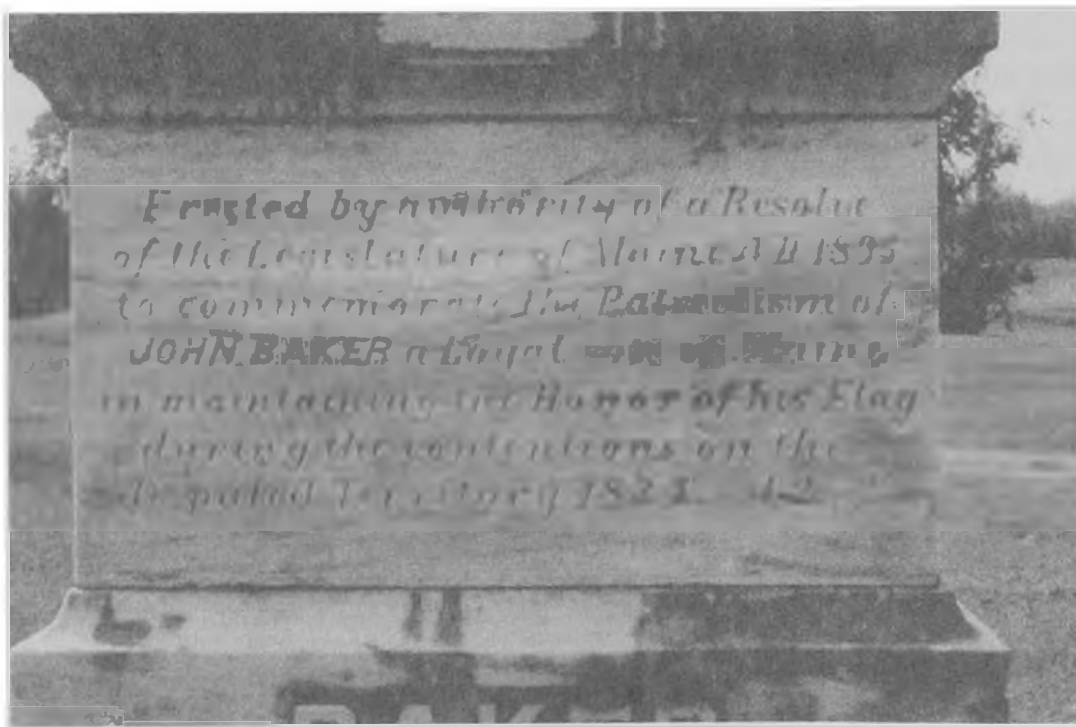 Erected by authority of a Resolve
of the Legislature of Maine A D 189
to commemorate the Patriotism of
JOHN BAKER a Loyal son of Maine
in maintaining the Honor of his Flag
during the contentions on the
disputed Territory 42
BAKER